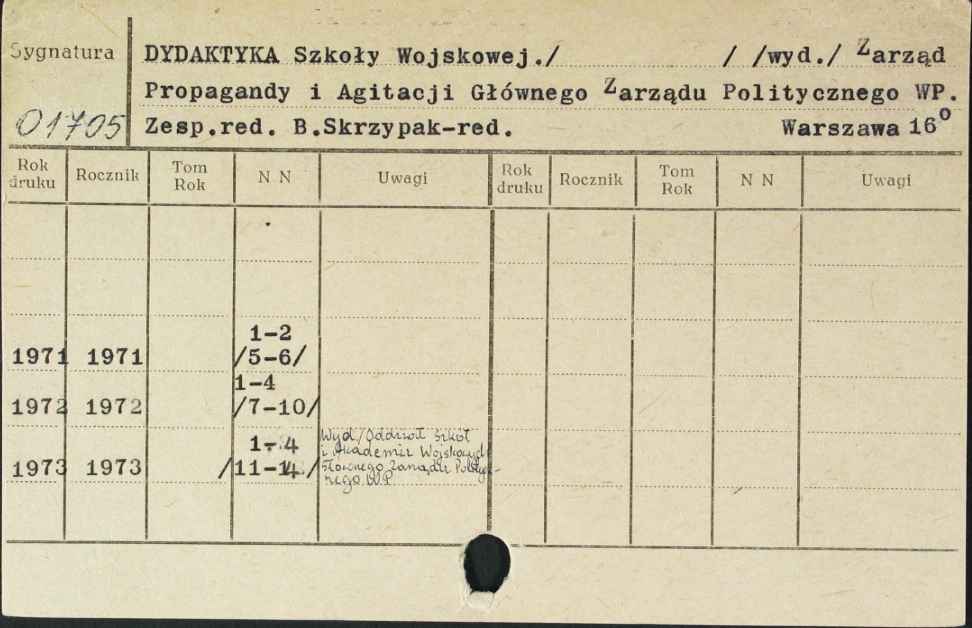 Sygnatura
DYDAKTYKA Szkoły Wojskowej./ / /wyd./ Zarząd
Propagandy i Agitacji Głównego Zarządu Politycznego WP.
01705 Zesp.red. B.Skrzypak-red. Warszawa 16°
Rok druku Rocznik Tom Rok N N Uwagi Rok druku Rocznik Tom Rok N N Uwagi
1-2
1971 1971 /5-6/
1-4
1972 1972 /7-10/
1-4
1973 1973 /11-14/
Wyd./Oddział Szkół
i Akademii Wojskowych
Głównego Zarządu Polity-
cznego W.P.